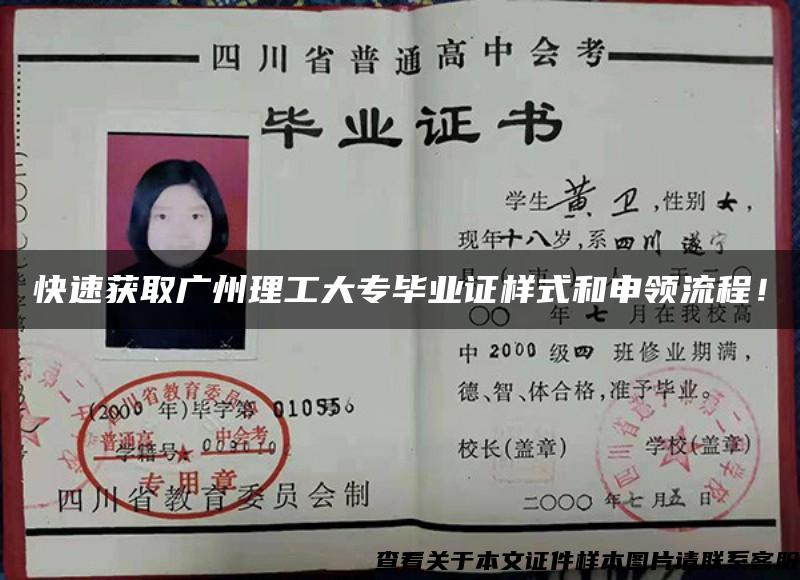 四川省普通高中会考
毕业证书
学生 黄卫 ,性别 女,
现年十八岁,系 四川 遂宁
快速获取广州理工大专毕业证样式和申领流程!
〇〇 年 七 月在我校高
中 2000 级四 班修业期满,
德、智、体合格,准予毕业。
校长(盖章) 学校(盖章)
二〇〇〇年七月五日
四川省教育委员会
(2000 年)毕学第 010556
普通高 中会考
学籍号
专用章
四川省教育委员会制
查看关于本文证件样本图片请联系客服